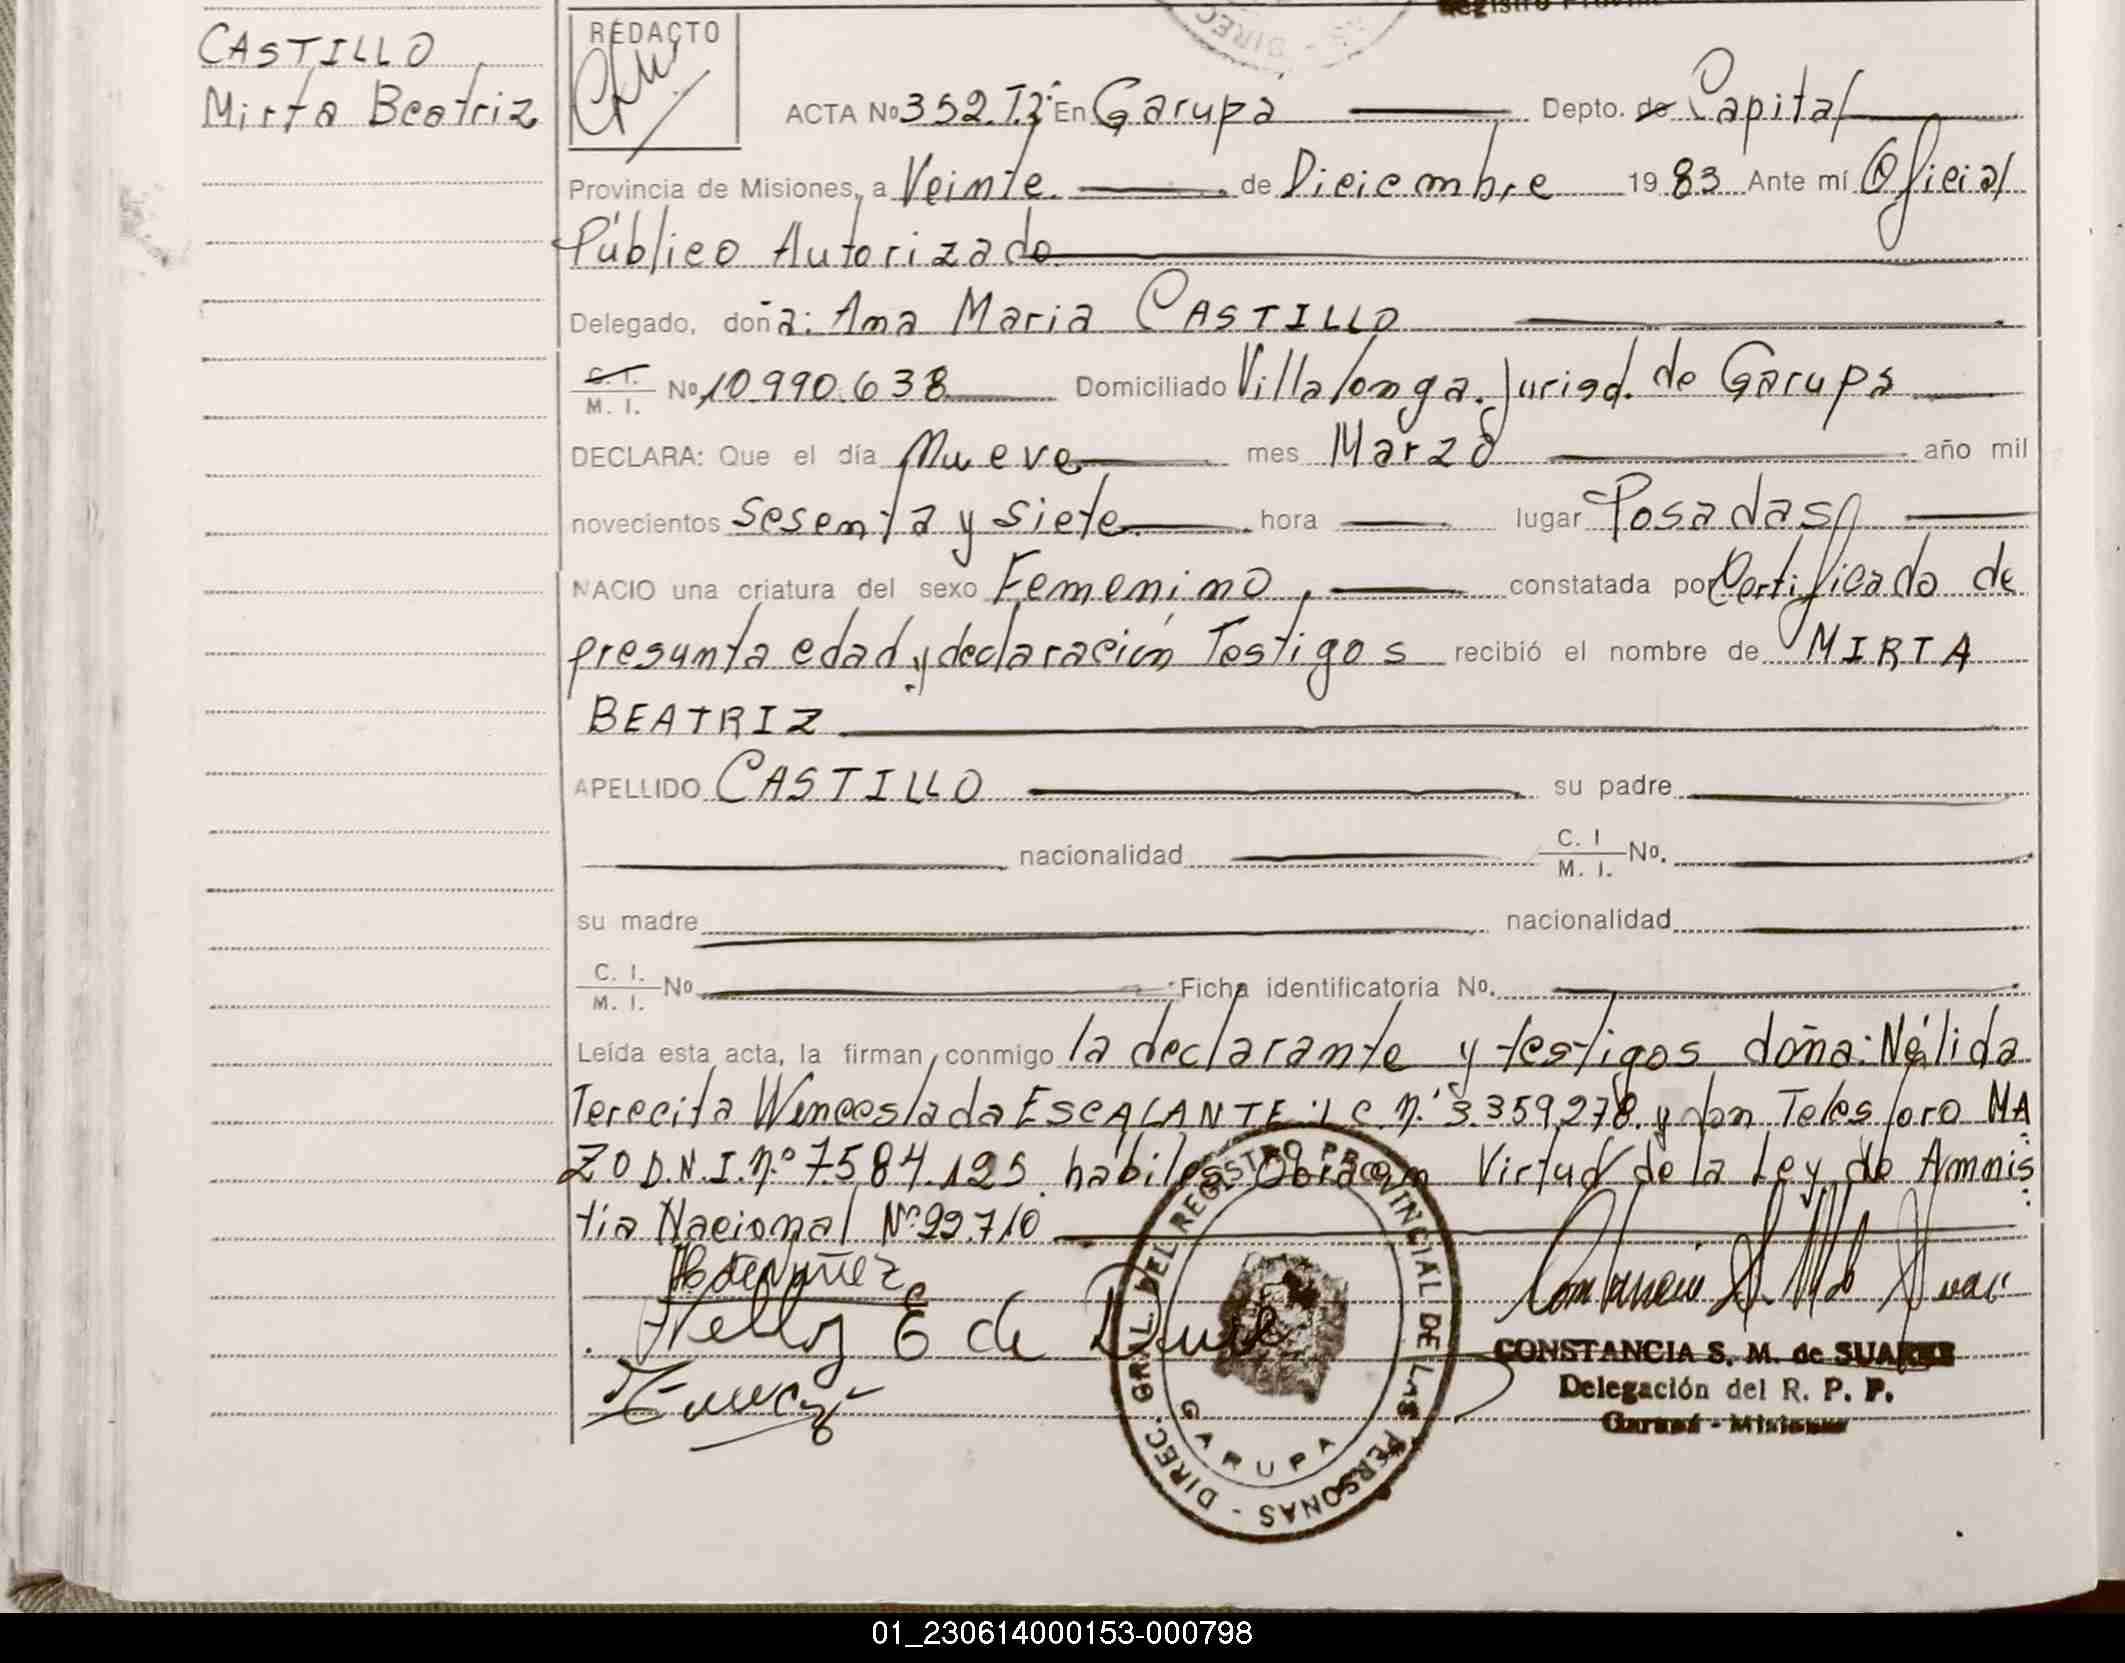 CASTILLO
Mirta Beatriz
REDACTO
ACTA No 352. T.2° En Garupá Depto. de Capital
Provincia de Misiones, a Veinte. de Dieiembre 1983 Ante mí Oficial
Público Autorizado
Delegado, doña: Ana Maria CASTILLO
C. I. / M. I. No 10.990.638 Domiciliado Villalonga. Jurisd. de Garupá
DECLARA: Que el día Nueve mes Marzo año mil
novecientos sesenta y siete hora lugar Posadas
NACIO una criatura del sexo Femenino, constatada por Certificado de
presunta edad y declaración Testigos recibió el nombre de MIRTA
BEATRIZ
APELLIDO CASTILLO su padre
nacionalidad C. I / M. I. No.
su madre nacionalidad
C. I. / M. I. No Ficha identificatoria No.
Leída esta acta, la firman conmigo la declarante y testigos doña: Nélida
Terecita Wenceslada ESCALANTE L C n.° 3.359.278. y don Telesforo MA
ZO D.N.I. n.° 7.584.125. habiles. Obra en Virtud de la Ley de Amnis
tia Nacional N° 22.710
Nelly E de
DIREC. GRAL. DEL REGISTRO PROVINCIAL DE LAS PERSONAS -
GARUPA
CONSTANCIA S. M. de SUAREZ
Delegación del R. P. P.
Garupá - Misiones
01_230614000153-000798